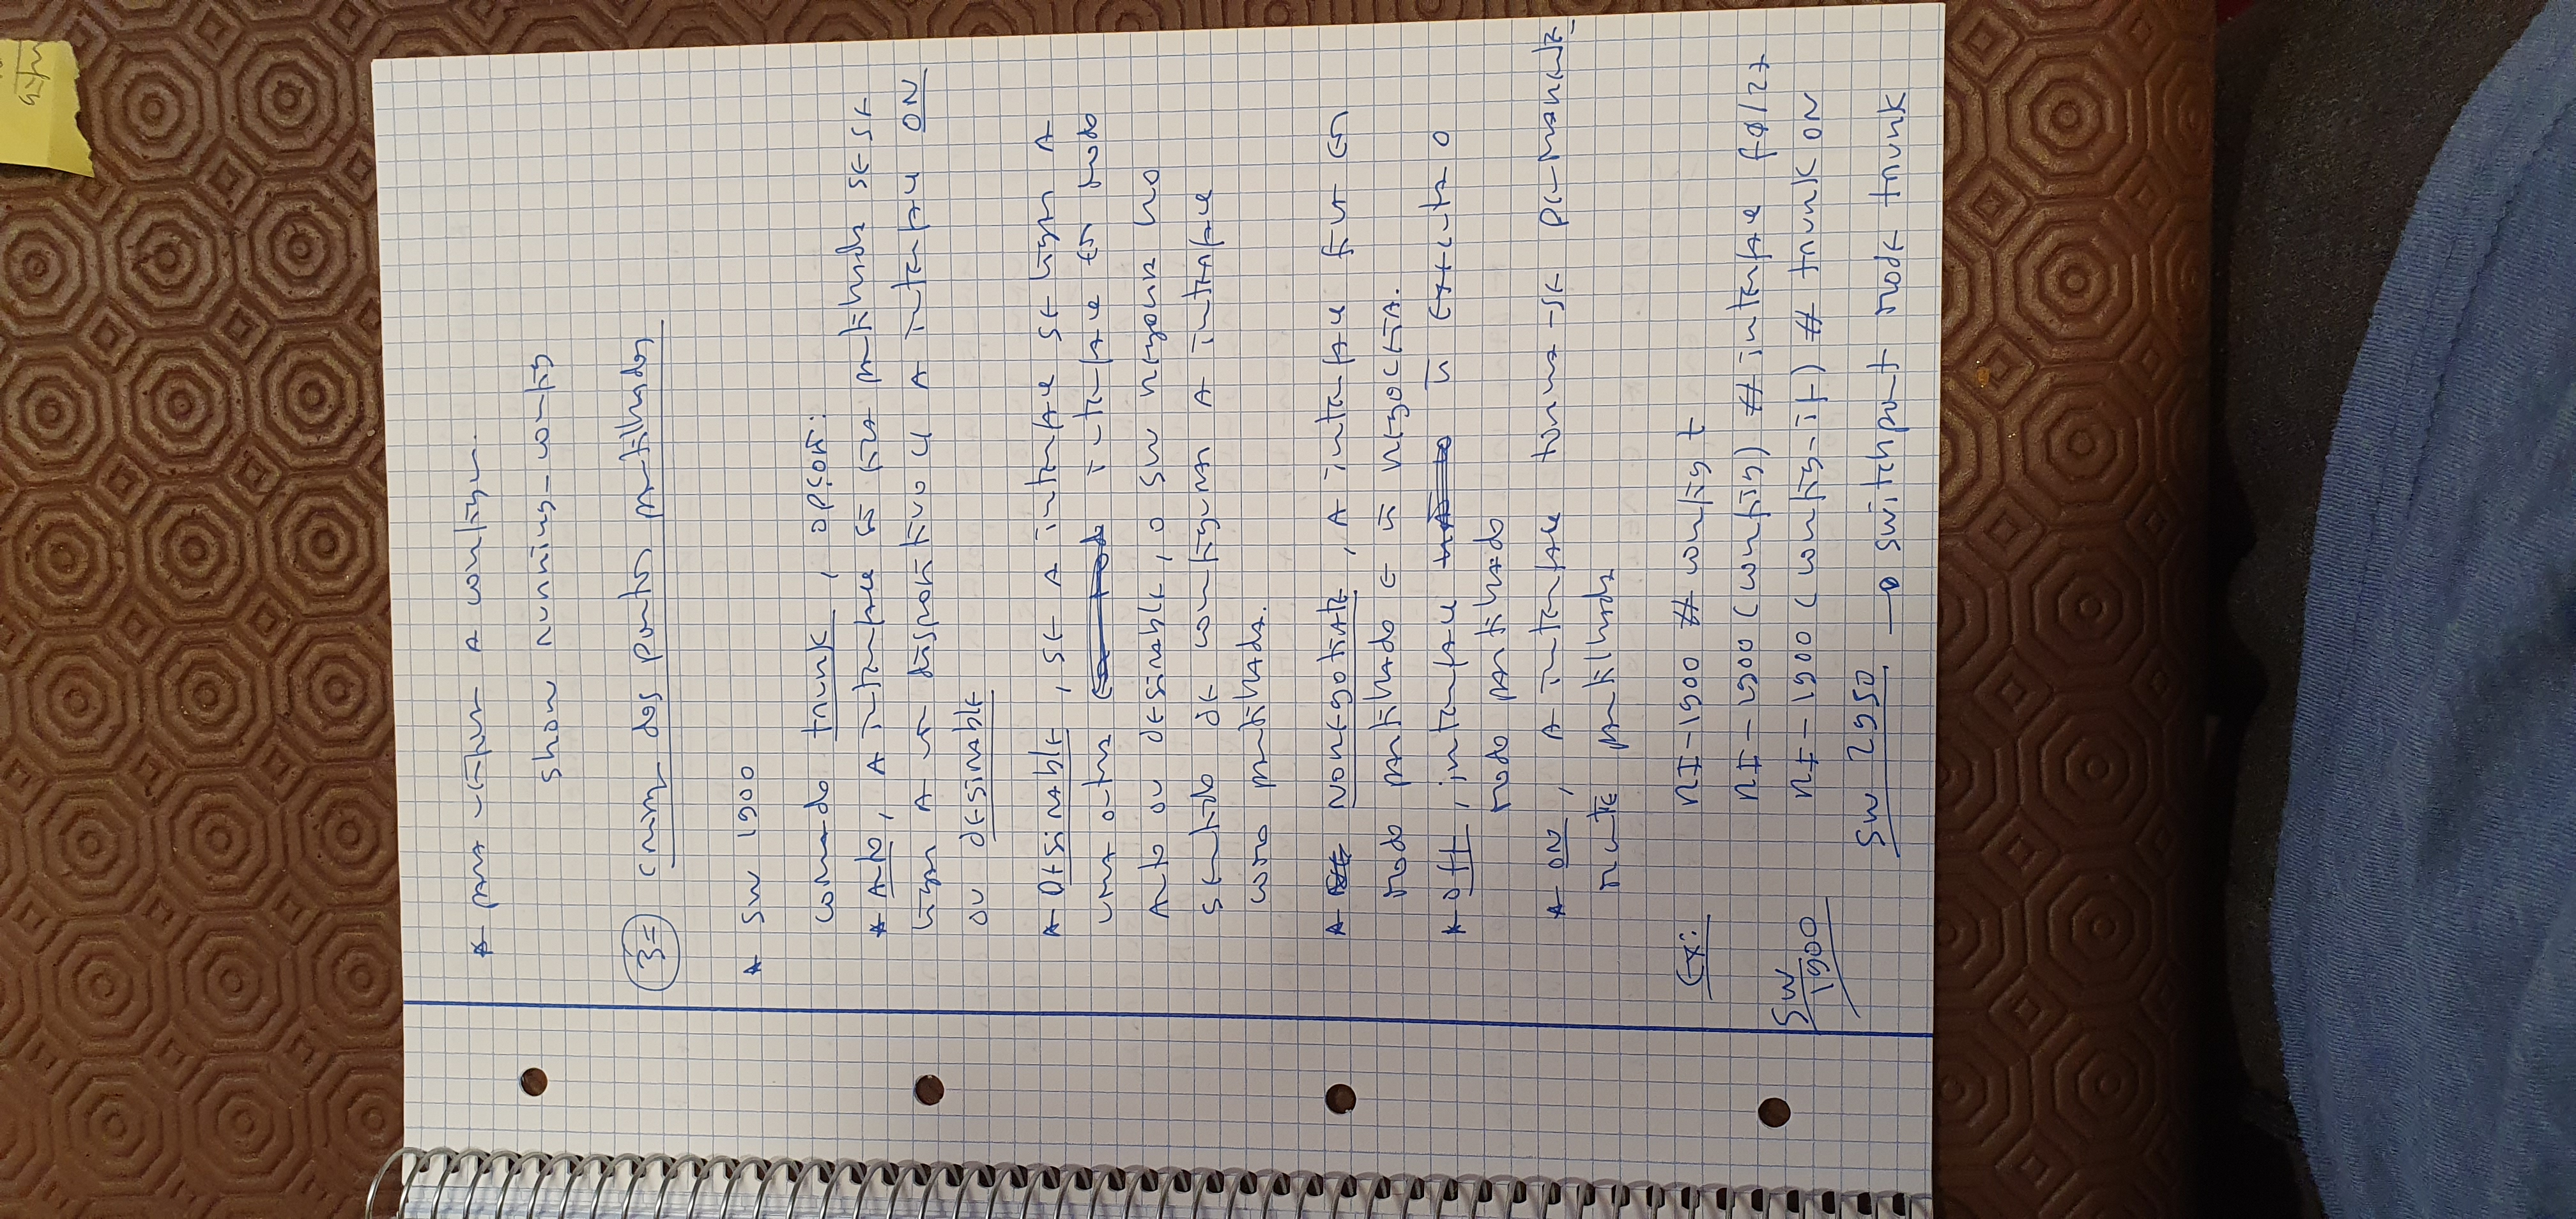 * para verificar A config.
show running-config
3= criar dos portos partilhados
* SW 1900
comado trunk, opções:
* Auto, A interface só fica partilhada se se
ligar A um dispositivo c/ A interface ON
ou desirable
* Desirable, se A interface se ligar A
uma outra interface em modo
Auto ou desirable, o sw negoceia no
sentido de configurar A interface
como partilhada.
* Nonegotiate, A interface fica em
modo partilhado e ñ negoceia.
* Off, interface ñ executa o
modo partilhado
* ON, A interface torna-se permanente_
mente partilhada
Ex: RI-1900 # config t
RI-1900 (config) # interface f0/27
SW 1900
RI-1900 (config-if) # trunk ON
SW 2950 → switchport mode trunk